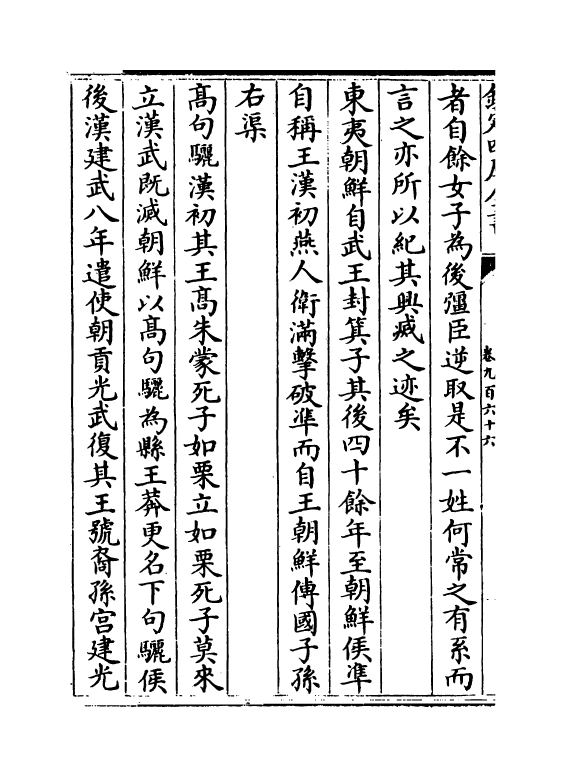 欽定四庫全書
卷九百六十六
者自餘女子為後彊臣逆取是不一姓何常之有系而
言之亦所以紀其興臧之迹矣
東夷朝鮮自武王封箕子其後四十餘年至朝鮮侯凖
自稱王漢初燕人衛滿擊破凖而自王朝鮮傳國子孫
右渠
髙句驪漢初其王髙朱蒙死子如栗立如栗死子莫來
立漢武既滅朝鮮以髙句驪為縣王莽更名下句驪侯
後漢建武八年遣使朝貢光武復其王號裔孫宫建光